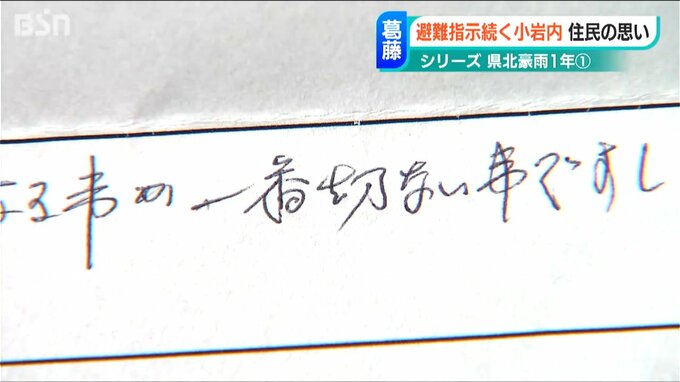 BSN
葛藤
避難指示続く小岩内 住民の思い
シリーズ 県北豪雨1年①
る事が一番切ない事ですし